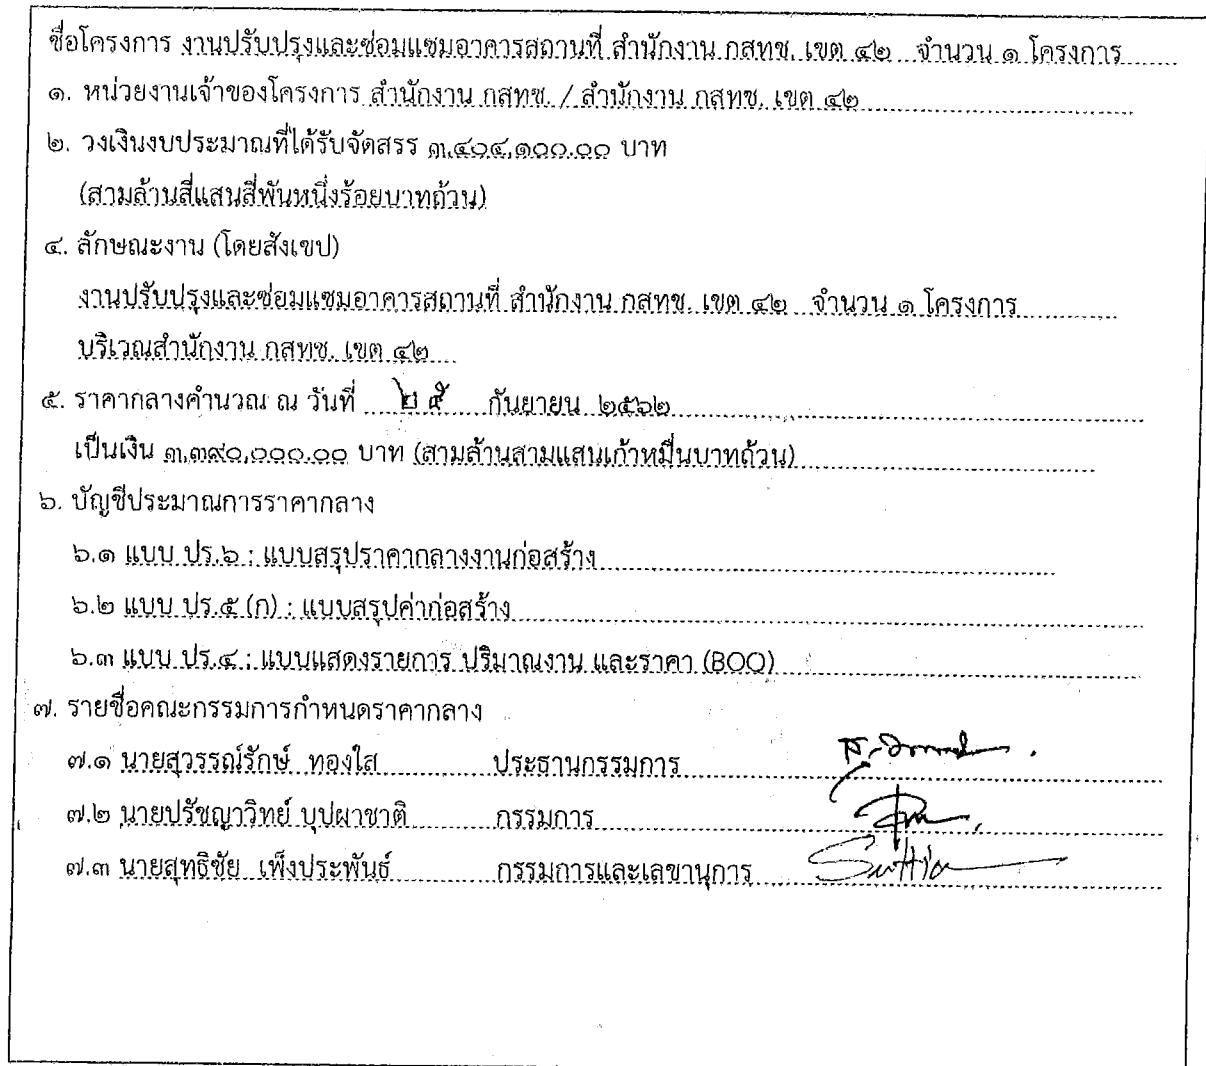 ชื่อโครงการ งานปรับปรุงและซ่อมแซมอาคารสถานที่ สำนักงาน กสทช. เขต ๔๒ จำนวน ๑ โครงการ
๑. หน่วยงานเจ้าของโครงการ สำนักงาน กสทช. / สำนักงาน กสทช. เขต ๔๒
๒. วงเงินงบประมาณที่ได้รับจัดสรร ๓,๔๐๔,๑๐๐.๐๐ บาท
(สามล้านสี่แสนสี่พันหนึ่งร้อยบาทถ้วน)
๔. ลักษณะงาน (โดยสังเขป)
งานปรับปรุงและซ่อมแซมอาคารสถานที่ สำนักงาน กสทช. เขต ๔๒ จำนวน ๑ โครงการ
บริเวณสำนักงาน กสทช. เขต ๔๒
๕. ราคากลางคำนวณ ณ วันที่ ๒๕ กันยายน ๒๕๖๒
เป็นเงิน ๓,๓๙๐,๐๐๐.๐๐ บาท (สามล้านสามแสนเก้าหมื่นบาทถ้วน)
๖. บัญชีประมาณการราคากลาง
๖.๑ แบบ ปร.๖ : แบบสรุปราคากลางงานก่อสร้าง
๖.๒ แบบ ปร.๕ (ก) : แบบสรุปค่าก่อสร้าง
๖.๓ แบบ ปร.๔ : แบบแสดงรายการ ปริมาณงาน และราคา (BOQ)
๗. รายชื่อคณะกรรมการกำหนดราคากลาง
๗.๑ นายสุวรรณ์รักษ์ ทองใส ประธานกรรมการ
๗.๒ นายปรัชญาวิทย์ บุปผาชาติ กรรมการ
๗.๓ นายสุทธิชัย เพ็งประพันธ์ กรรมการและเลขานุการ